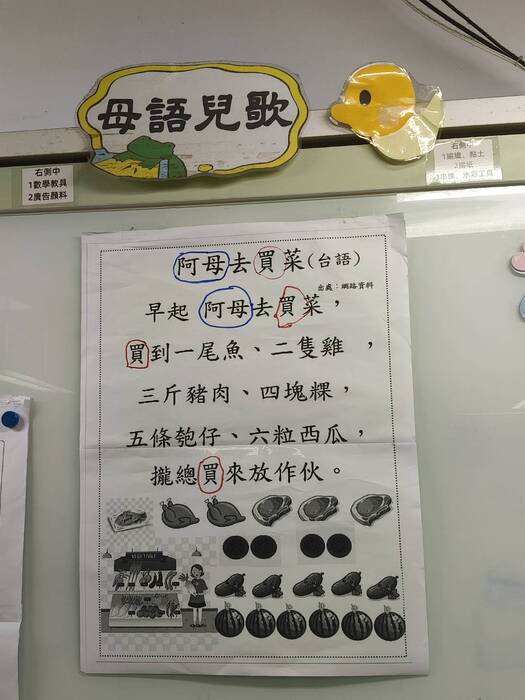 母語兒歌
右側中
1數學教具
2廣告顏料
右側中
水彩工具
阿母去買菜(台語)
出處：網路資料
早起 阿母去買菜，
買到一尾魚、二隻雞 ，
三斤豬肉、四塊粿，
五條匏仔、六粒西瓜，
攏總買來放作伙。